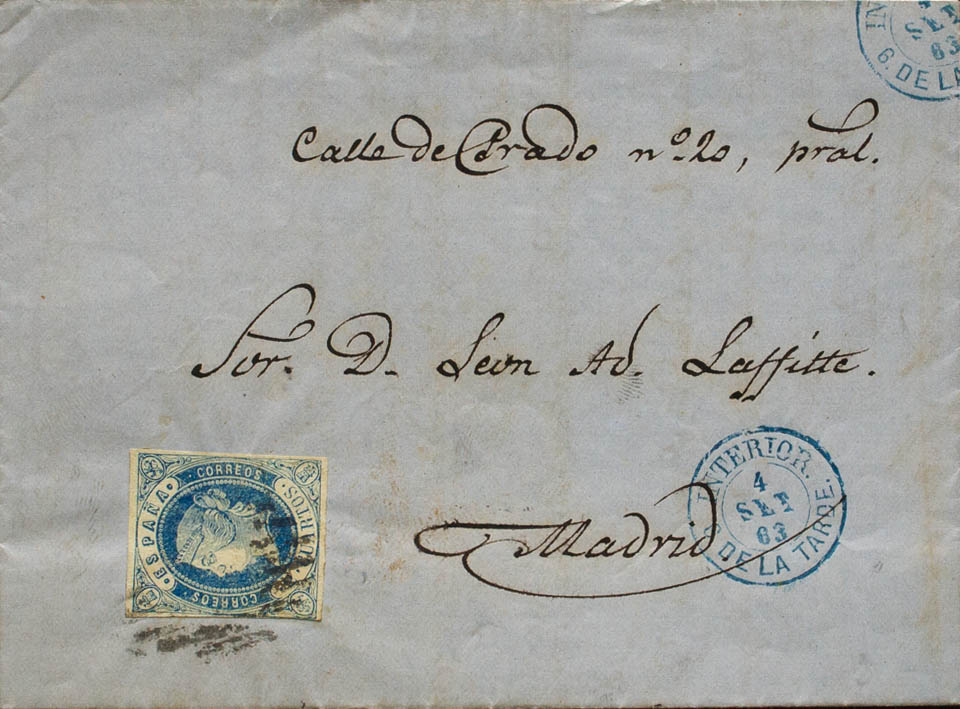 IN
SET
63
6. DE LA
Calle de Prado nº. 20, pral.
Sor. D. Leon Ad. Laffitte.
Madrid
INTERIOR.
4
SET
63
DE LA TARDE.
CORREOS
ESPAÑA
CUARTOS
CORREOS